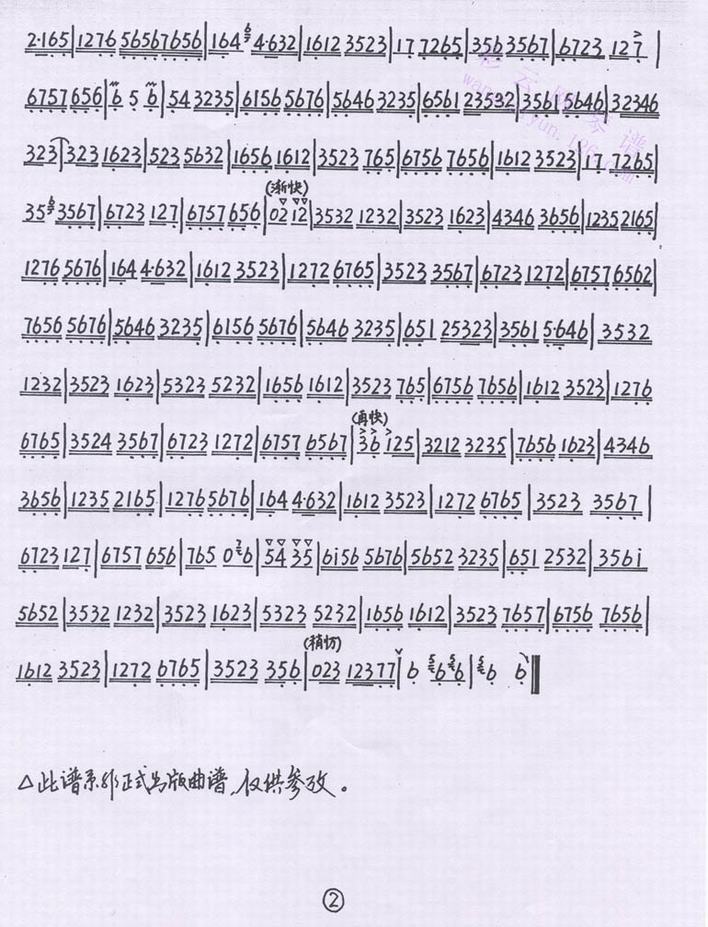 2·165|1276 56567656|164 6 4·632|1612 3523|17 7265|356 3567|6723 127|
6757 656|6 5 6|54 3235|6156 5676|5646 3235|6561 23532|3561 5646|32346
323|323 1623|523 5632|1656 1612|3523 765|6756 7656|1612 3523|17 7265|
35 6 3567|6723 127|6757 656|(渐快) 02 12|3532 1232|3523 1623|4346 3656|1235 2165|
1276 5676|164 4·632|1612 3523|1272 6765|3523 3567|6723 1272|6757 6562|
7656 5676|5646 3235|6156 5676|5646 3235|651 25323|3561 5·646|3532
1232|3523 1623|5323 5232|1656 1612|3523 765|6756 7656|1612 3523|1276
6765|3524 3567|6723 1272|6757 6567|(再快) 36 125|3212 3235|7656 1623|4346
3656|1235 2165|1276 5676|164 4·632|1612 3523|1272 6765|3523 3567|
6723 127|6757 656|765 0 6|54 35|6i56 5676|5652 3235|651 2532|356i
5652|3532 1232|3523 1623|5323 5232|1656 1612|3523 7657|6756 7656|
1612 3523|1272 6765|3523 356|023 12377|6 5 6 5 6|5 6 6‖
△此谱系非正式出版曲谱,仅供参考。
②